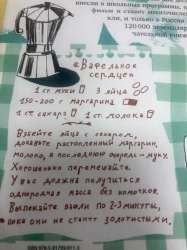 школьные программы, к
фильм и станет
и, и только в России
120 000 экземпляр
«Вафельное
сердце»
1 ст. муки 3 яйца
150-200 г маргарина
1 ст. сахара 1 ст. молока
Взбейте яйца с сахаром,
добавьте растопленный маргарин,
молоко, в последнюю очередь - муку.
Хорошенько перемешайте.
У вас должна получиться
однородная масса без комочков.
Выпекайте вафли по 2-3 минуты,
пока они не станут золотистыми.